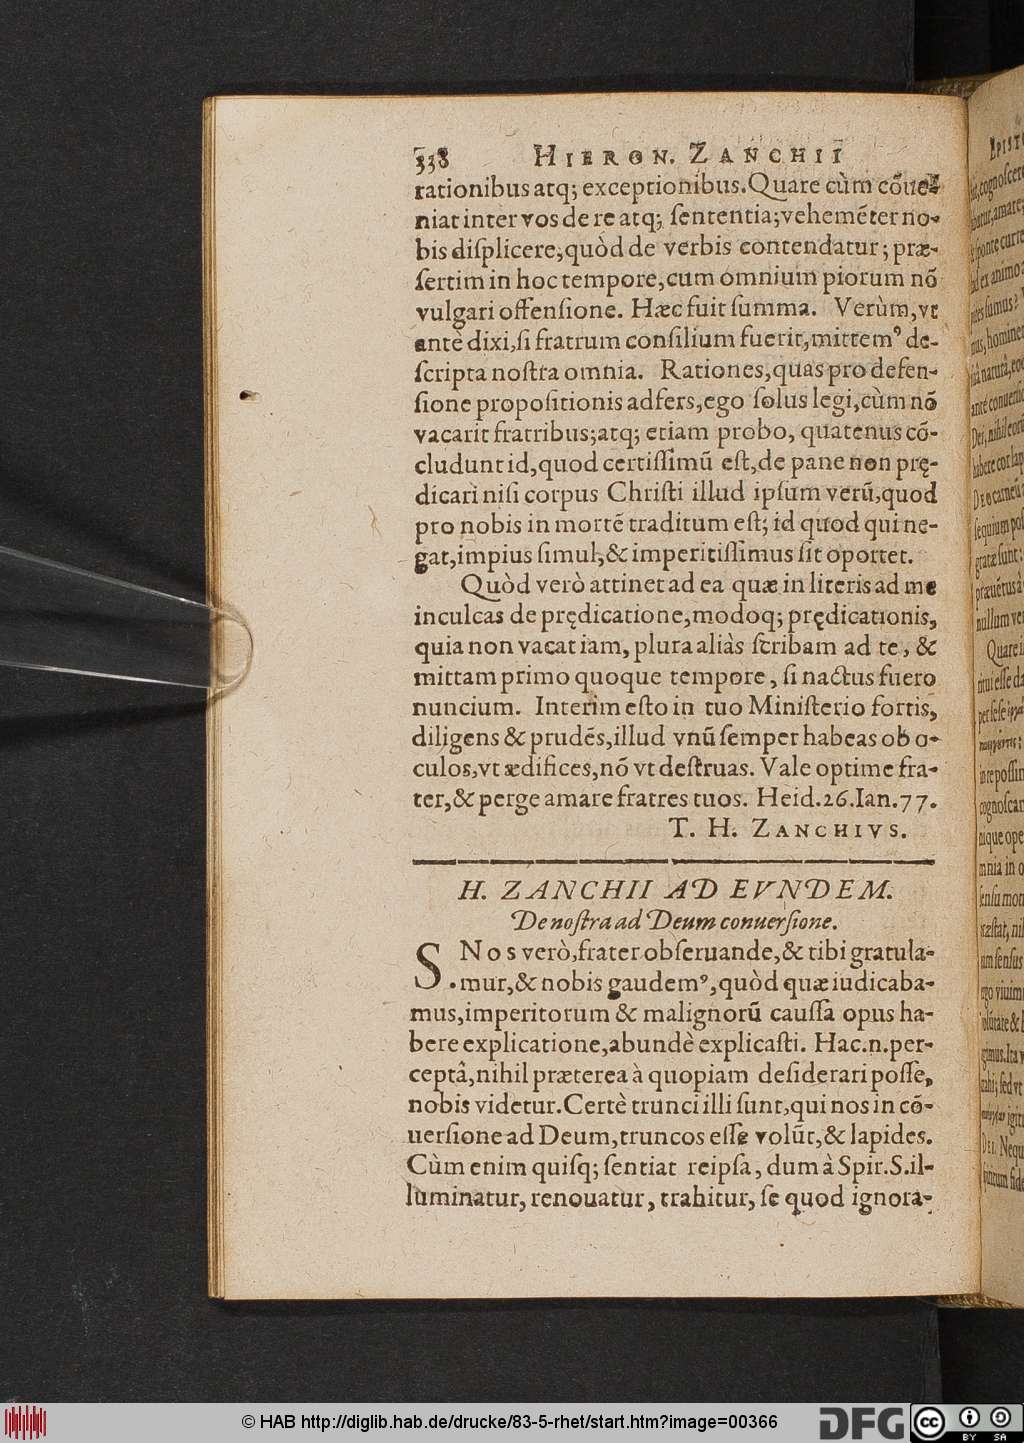 338 HIERON. ZANCHII
rationibus atq; exceptionibus. Quare cùm cõue-
niat inter vos de re atq; sententia; vehemẽter no-
bis displicere, quòd de verbis contendatur; præ-
sertim in hoc tempore, cum omnium piorum nõ
vulgari offensione. Hæc fuit summa. Verùm, vt
antè dixi, si fratrum consilium fuerit, mittemꝰ de-
scripta nostra omnia. Rationes, quas pro defen-
sione propositionis adfers, ego solus legi, cùm nõ
vacarit fratribus; atq; etiam probo, quatenus cõ-
cludunt id, quod certissimũ est, de pane non prę-
dicari nisi corpus Christi illud ipsum verũ, quod
pro nobis in mortẽ traditum est; id quod qui ne-
gat, impius simul, & imperitissimus sit oportet.
Quòd verò attinet ad ea quæ in literis ad me
inculcas de prędicatione, modoq; prędicationis,
quia non vacat iam, plura aliàs scribam ad te, &
mittam primo quoque tempore, si nactus fuero
nuncium. Interim esto in tuo Ministerio fortis,
diligens & prudẽs, illud vnũ semper habeas ob o-
culos, vt ædifices, nõ vt destruas. Vale optime fra-
ter, & perge amare fratres tuos. Heid. 26. Ian. 77.
T. H. ZANCHIVS.
H. ZANCHII AD EVNDEM.
De nostra ad Deum conuersione.
S. Nos verò, frater obseruande, & tibi gratula-
mur, & nobis gaudemꝰ, quòd quæ iudicaba-
mus, imperitorum & malignorũ caussa opus ha-
bere explicatione, abundè explicasti. Hac.n. per-
ceptâ, nihil præterea à quopiam desiderari posse,
nobis videtur. Certè trunci illi sunt, qui nos in cõ-
uersione ad Deum, truncos esse volũt, & lapides.
Cùm enim quisq; sentiat reipsa, dum à Spir. S. il-
luminatur, renouatur, trahitur, se quod ignora-
© HAB http://diglib.hab.de/drucke/83-5-rhet/start.htm?image=00366
DFG
cc BY SA